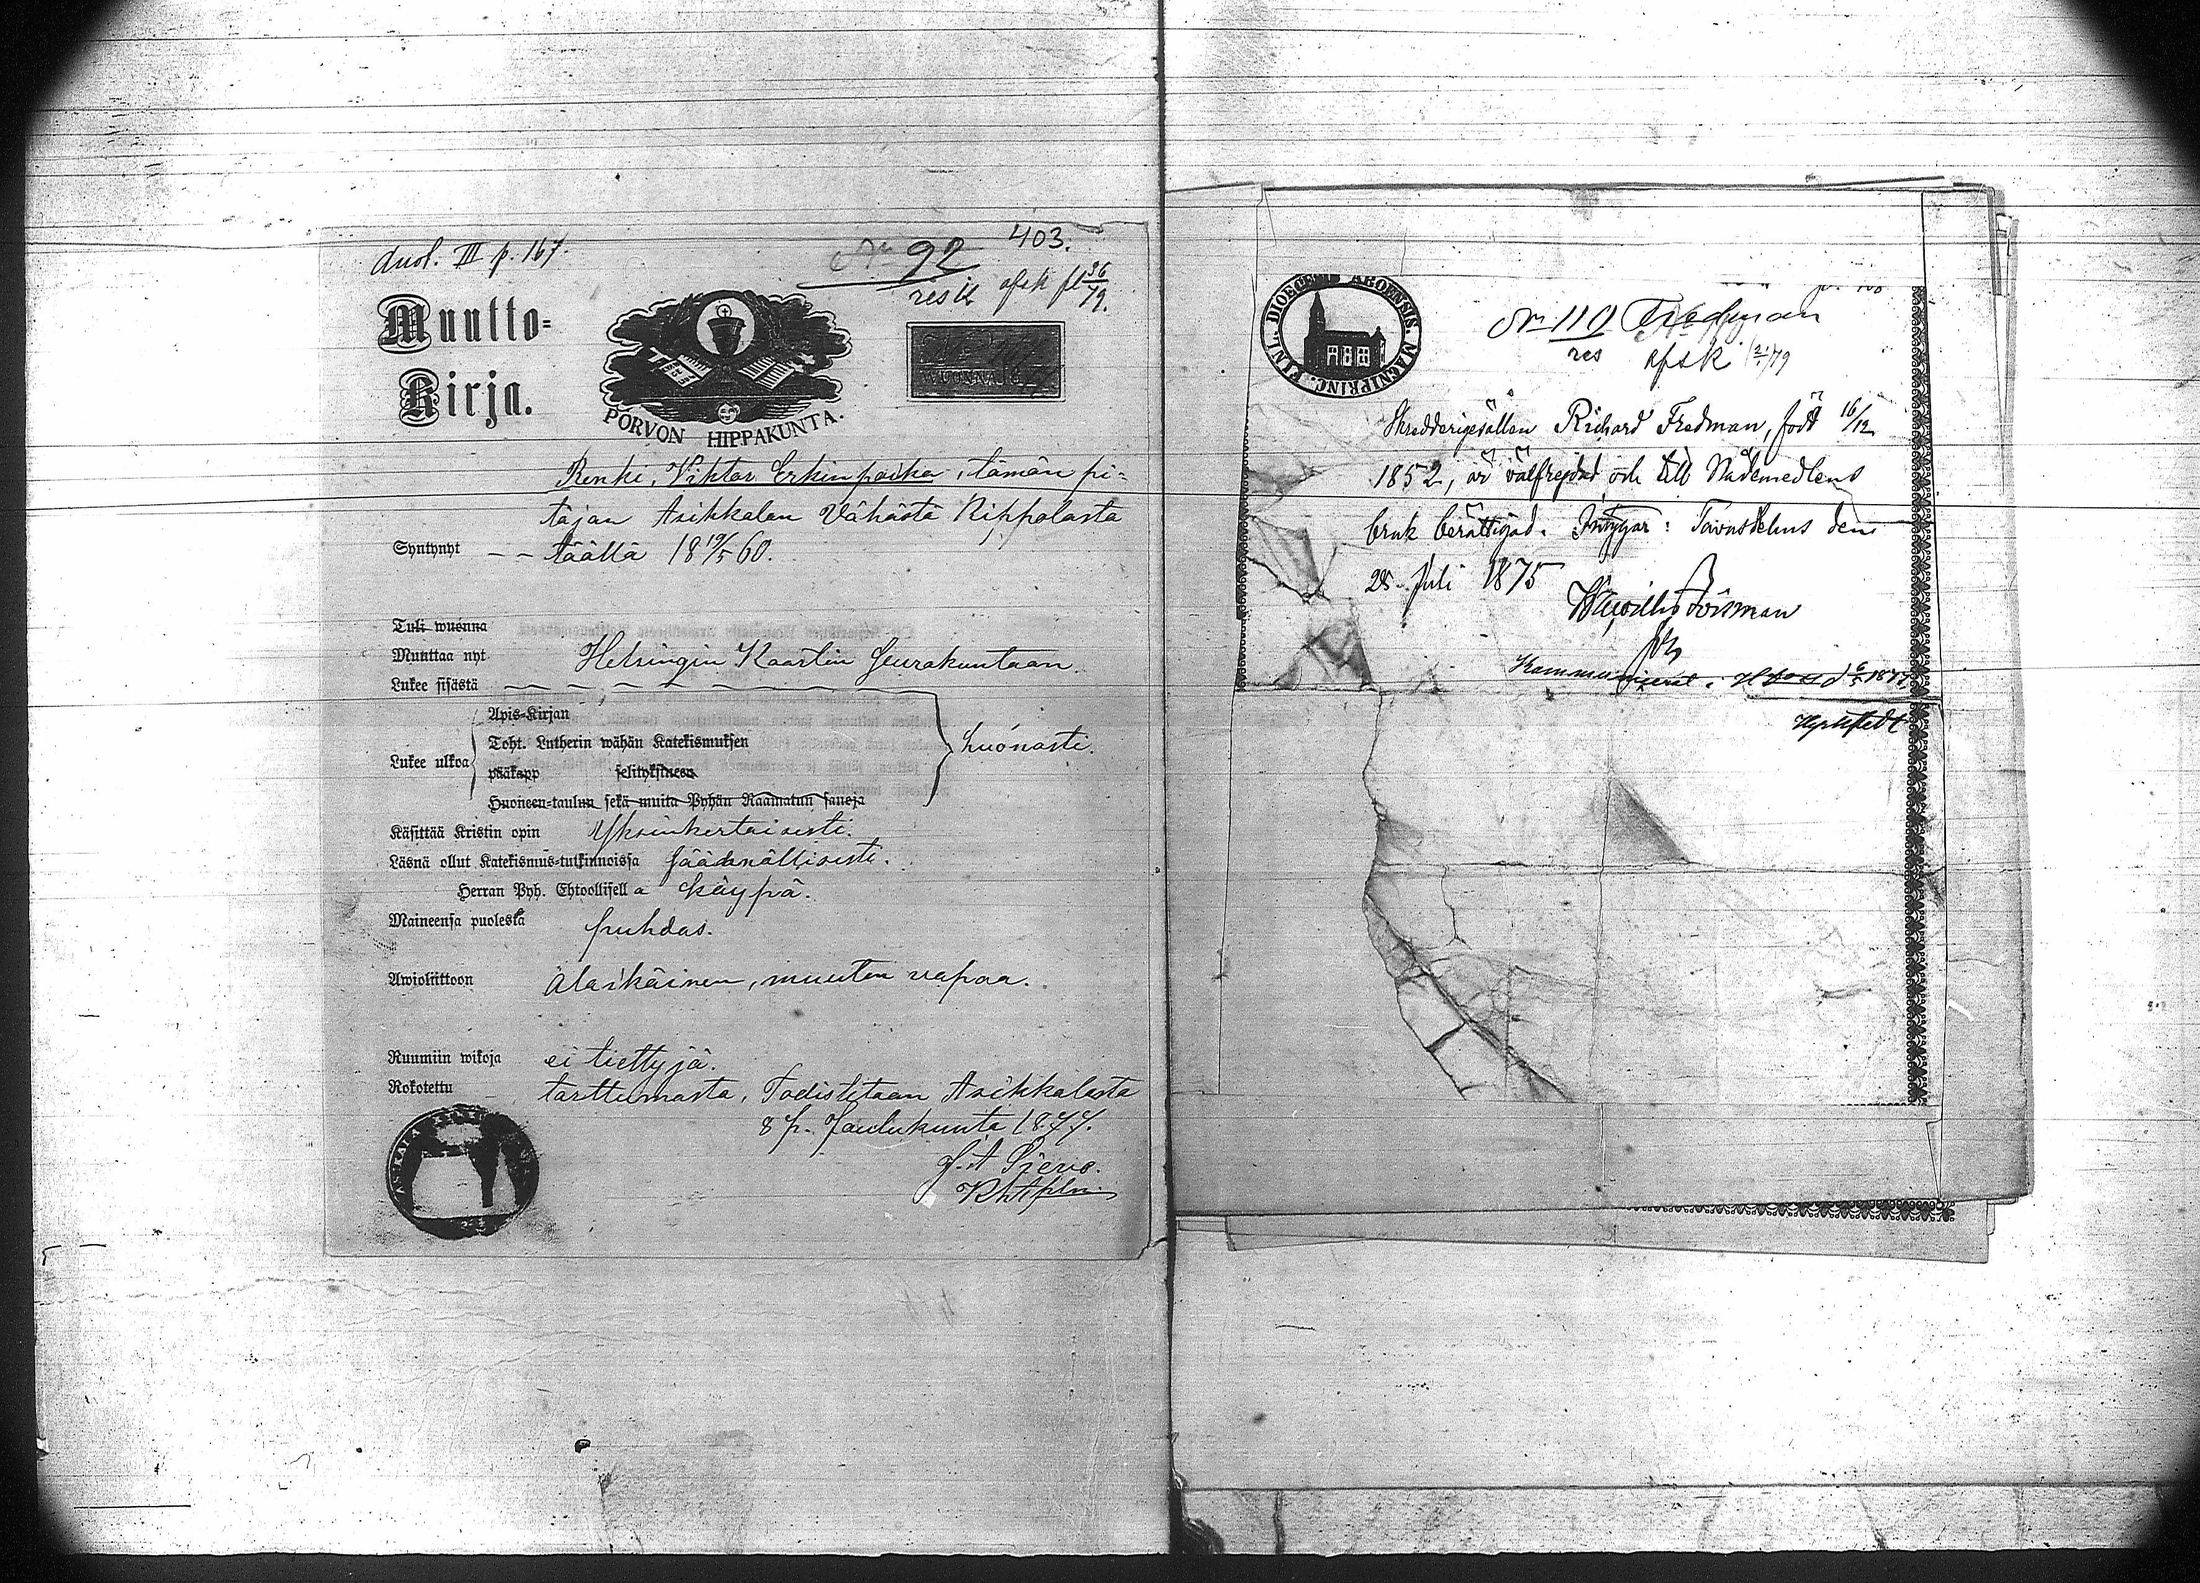 403.
Anol. III p. 167.
No 92
resk afsk fl 36/79.
Muutto=
Kirja.
PORVON HIPPAKUNTA.
Renki, Viktor Erkinpoika, tämän pi-
täjän Asikkalan Vähästä Kippolasta
Syntynyt — — täällä 18 19/5 60.
Tuli wuonna
Muuttaa nyt Helsingin Kaartin Seurakuntaan.
Lukee sisästä
Apis=Kirjan
Toht. Lutherin wähän Katekismuksen
Lukee ulkoa
pääkapp selityksineen
huonosti.
Huoneen=taulun sekä muita Pyhän Raamatun sanoja
Käsittää Kristin opin Yksinkertaisesti.
Läsnä ollut Katekismus=tutkinnoissa säädenällisesti.
Herran Pyh. Ehtoollisella käypä.
Maineensa puolesta puhdas.
Awioliittoon alaikäinen, muuten vapaa.
Ruumiin wikoja ei tiettyjä.
Rokotettu tarttumasta, Todistetaan Asikkalasta
8 p. Joulukuuta 1877.
ASIKKALA
FINL. DIOECES. ABOENSIS. MAGNIPRINC.
No 110 Fredman
res afsk 79
Skreddarigesällen Richard Fredman, född 16/12
1852, är välfrejdad och till Nådemedlens
bruk berättigad. Intygar: Tavastehus den
28 Juli 1875
Kommunicerat i